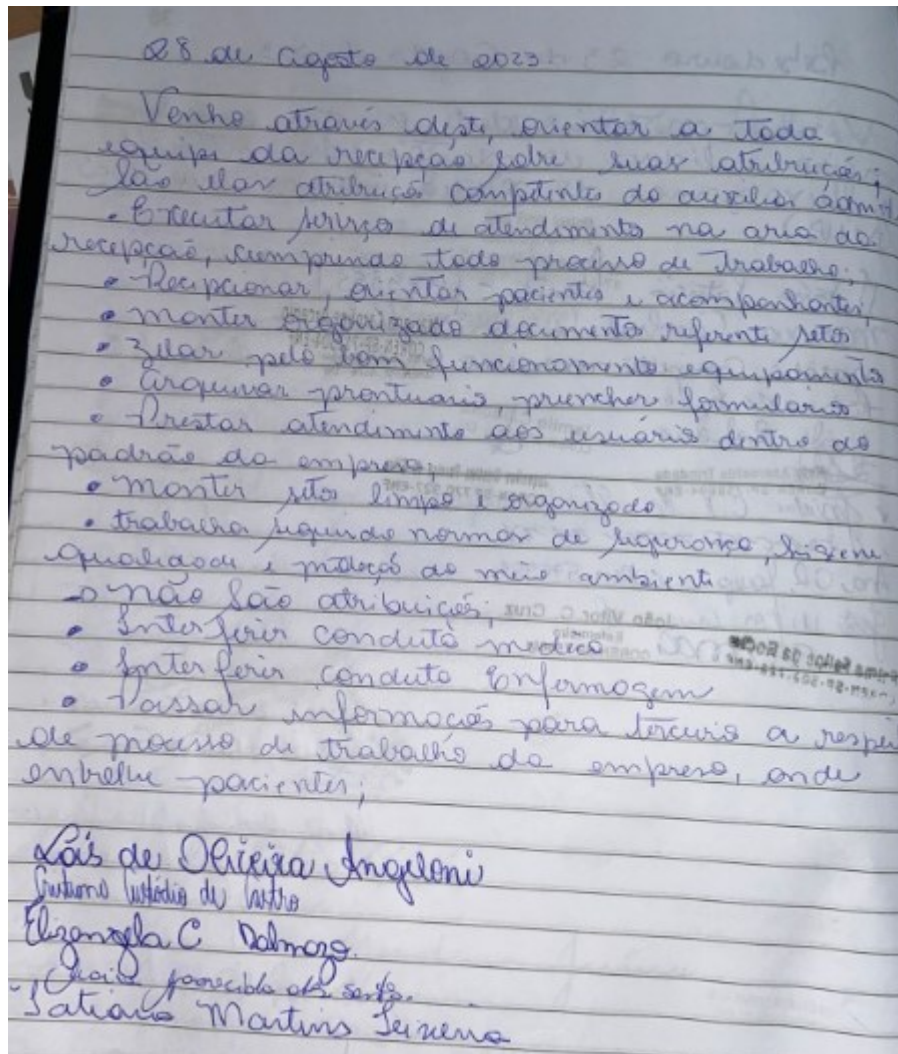 28 de Agosto de 2023
Venho através deste, orientar a toda
equipe da recepção sobre suas atribuições;
São elas atribuições competente do auxiliar admt
• Executar serviço de atendimento na area da
recepção, cumprindo todo processo de Trabalho;
• Recepcionar, orientar pacientes e acompanhantes;
• manter organizado documento referente setor
• Zelar pelo bom funcionamento equipamento
• Arquivar prontuario, preencher formulario
• Prestar atendimento aos usuário dentro do
padrão da empresa
• manter setor limpo e organizado
• trabalha segundo normas de segurança, higiene
qualidade e proteção ao meio ambiente
não São atribuições;
• Interferir conduta medica
• Interferir conduta Enfermagem
• Passar informações para terceiro a respei
de processo de trabalho da empresa, onde
pacientes;
Laís de Oliveira Angeloni
Custódio de Castro
Elizangela C Dalmazo.
Tatiana Martins Teixeira